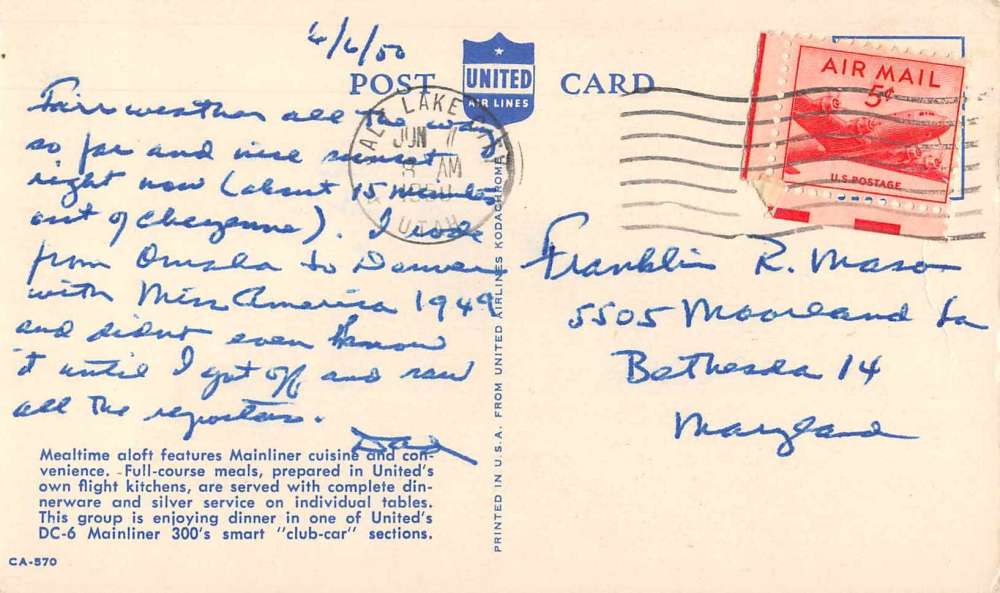 6/6/50
POST CARD
UNITED
AIR LINES
AIR MAIL
5¢
U.S. POSTAGE
SALT LAKE CITY
JUN 7
8 AM
1950
UTAH
Fair weather all the way
so far and nice sunset
right now (about 15 minutes
out of Cheyenne). I rode
from Omaha to Denver
with Miss America 1949
and didnt even know
it until I got off and saw
all the reporters.
Dad
Franklin R. Mason
5505 Mooreland La
Bethesda 14
Maryland
Mealtime aloft features Mainliner cuisine and con-
venience. Full-course meals, prepared in United's
own flight kitchens, are served with complete din-
nerware and silver service on individual tables.
This group is enjoying dinner in one of United's
DC-6 Mainliner 300's smart "club-car" sections.
CA-570
PRINTED IN U.S.A. FROM UNITED AIRLINES KODACHROME